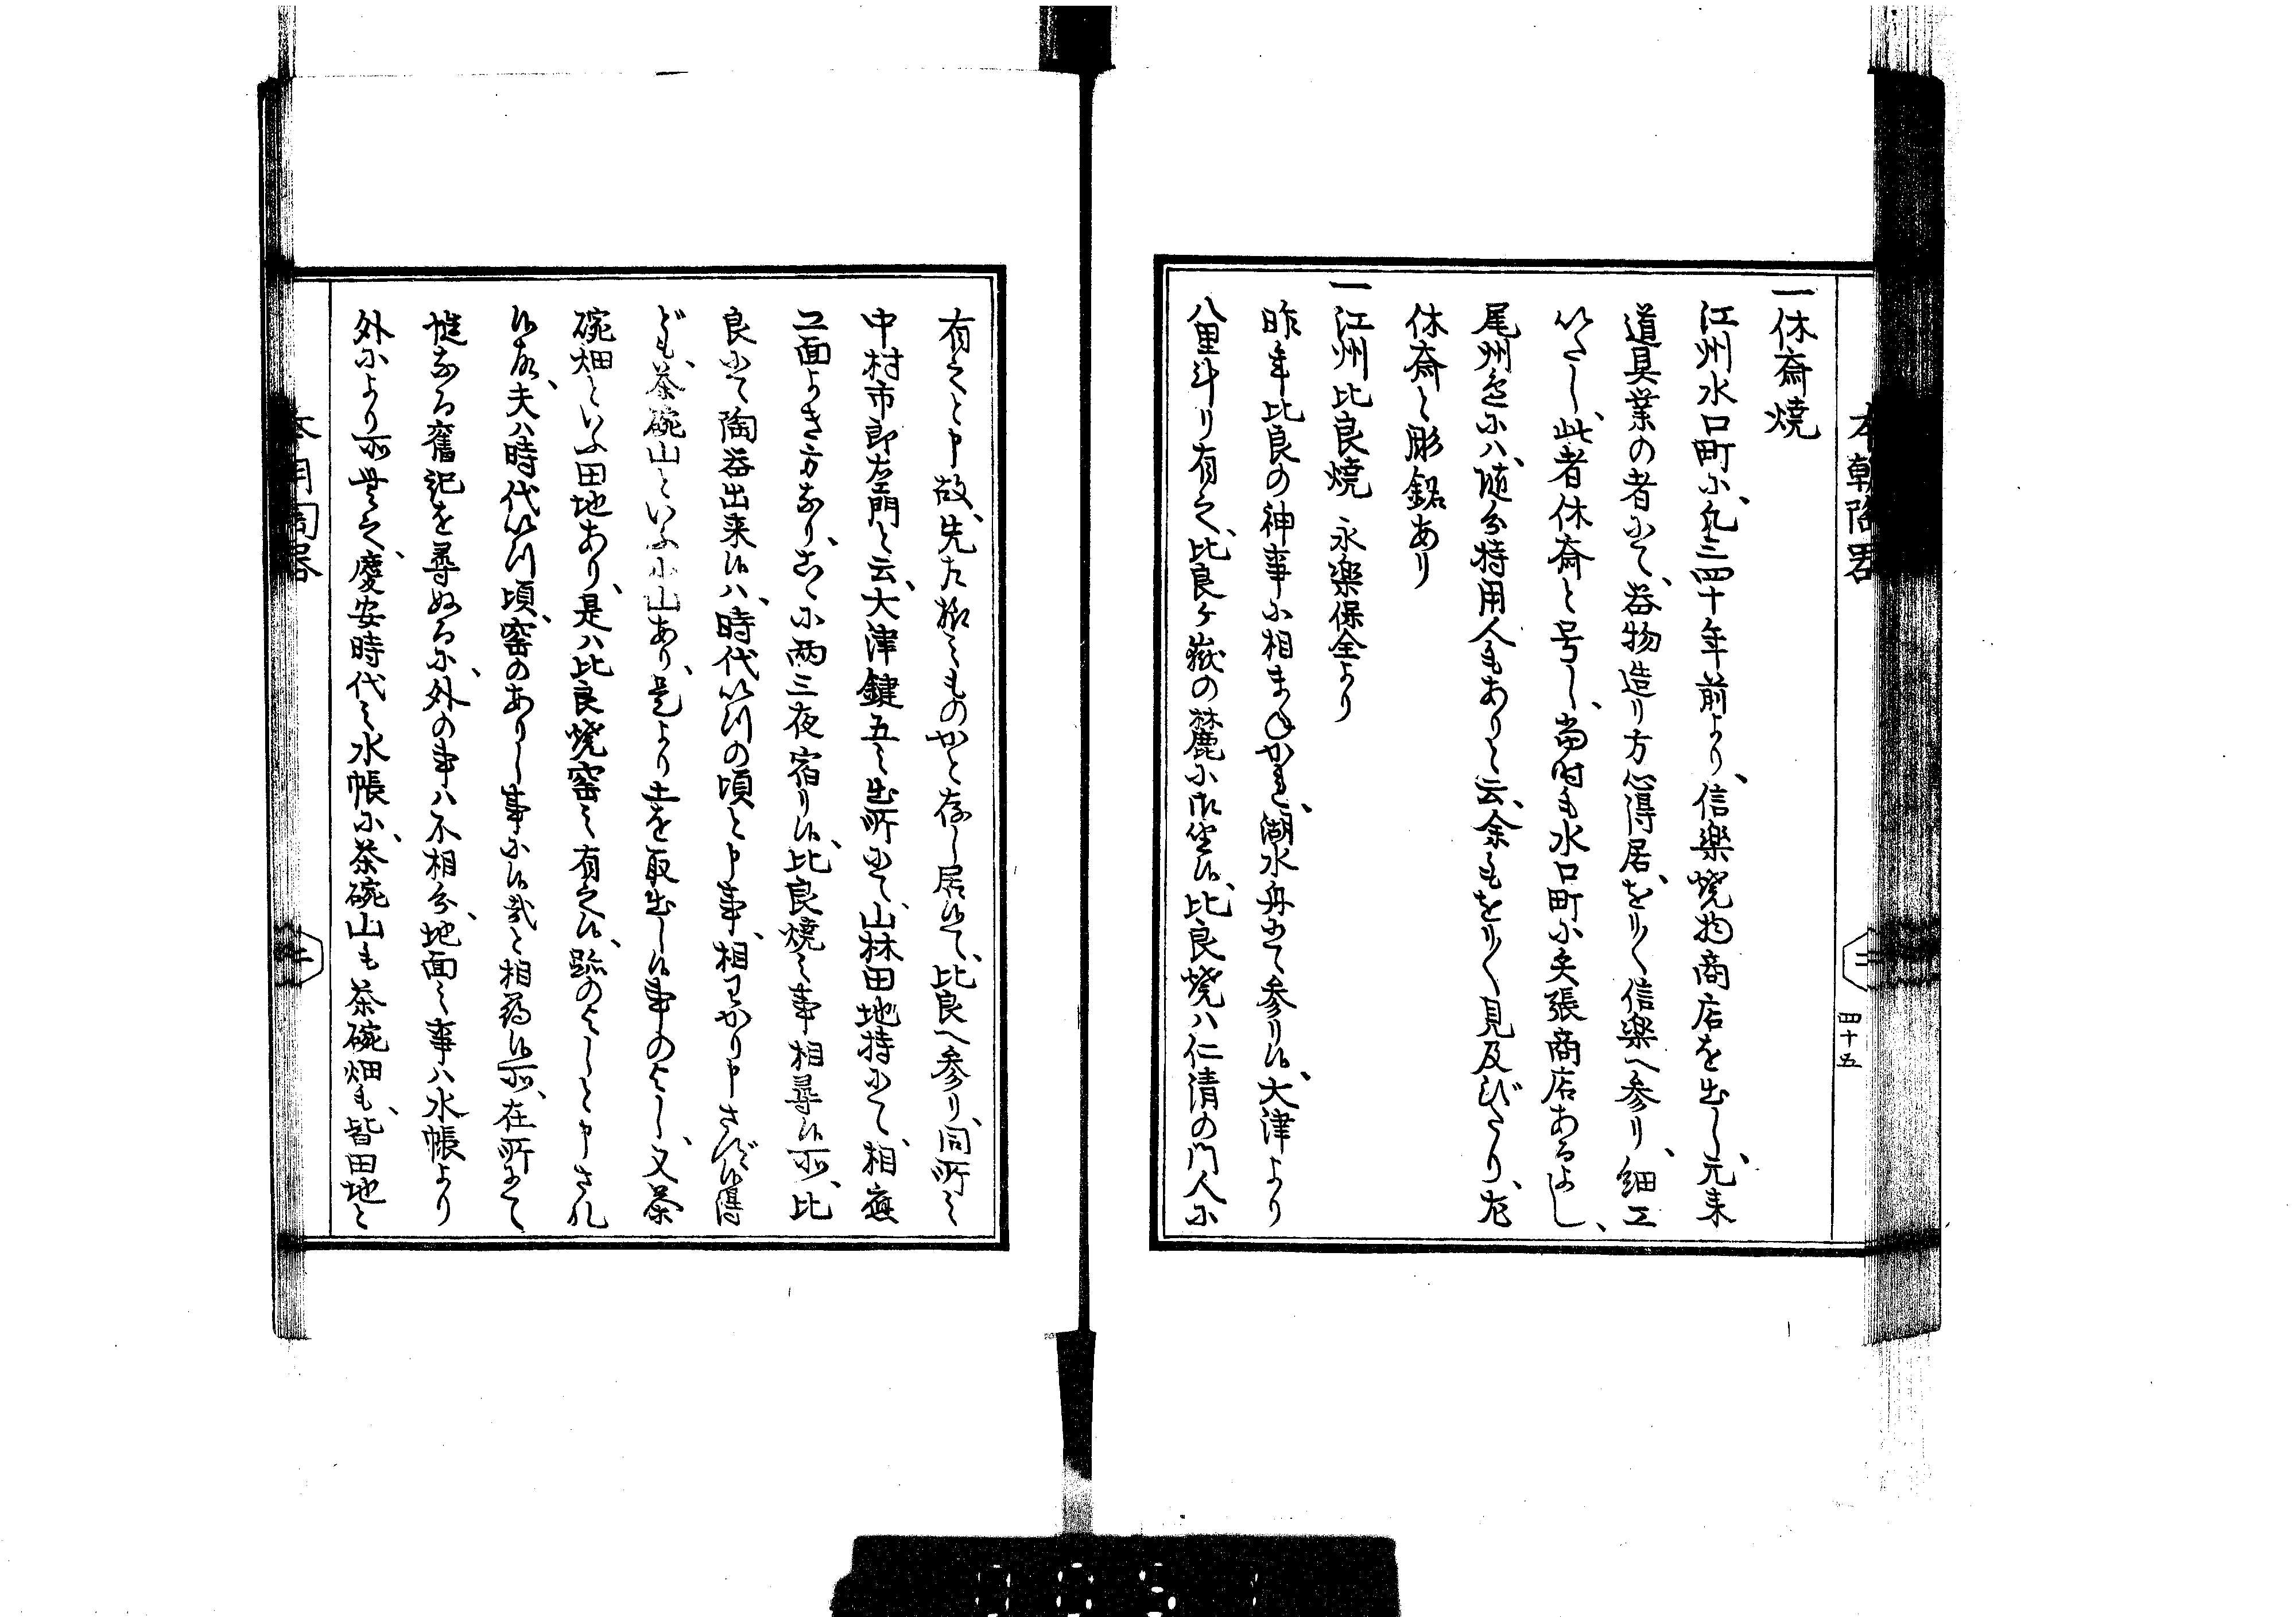 本朝陶器
三
四十五
一休斎焼
江州水口町に、凡三四十年前より、信楽焼物商店を出し、元来
道具業の者にて、器物造り方心得居、をり〳〵信楽へ参り、細工
いたし、此者休斎と号し、当時も水口町に矢張商店あるよし、
尾州邊にハ、随分特用人もありと云、余もをり〳〵見及びたり、左
休斎と彫銘あり
一江州比良焼 永楽保全より
昨年比良の神事に相まねかれ、湖水舟にて参り候、大津より
八里斗り有之、比良ヶ嶽の麓に御坐候、比良焼ハ仁清の門人に
有之と申故、先た〳〵のものかと存し居候て、比良へ参り、同所之
中村市郎左門と云、大津鍵五之出所にて、山林田地持にて、相應
工面よき方なり、こゝに両三夜宿り候、比良焼之事相尋候所、比
良にて陶器出来候ハ、時代いつの頃と申事、相わかり申さず候得
ども、茶碗山といふ小山あり、是より土を取出し候事のよし、又茶
碗畑といふ田地あり、是ハ比良焼窯之有之候、跡のよしと申され
候故、夫ハ時代いつ頃、窯のありし事に候哉と相尋候所、在所にて
慥なる旧記を尋ぬるに、外の事ハ不相分、地面之事ハ水帳より
外により所無之、慶安時代之水帳に、茶碗山も茶碗畑も、皆田地と